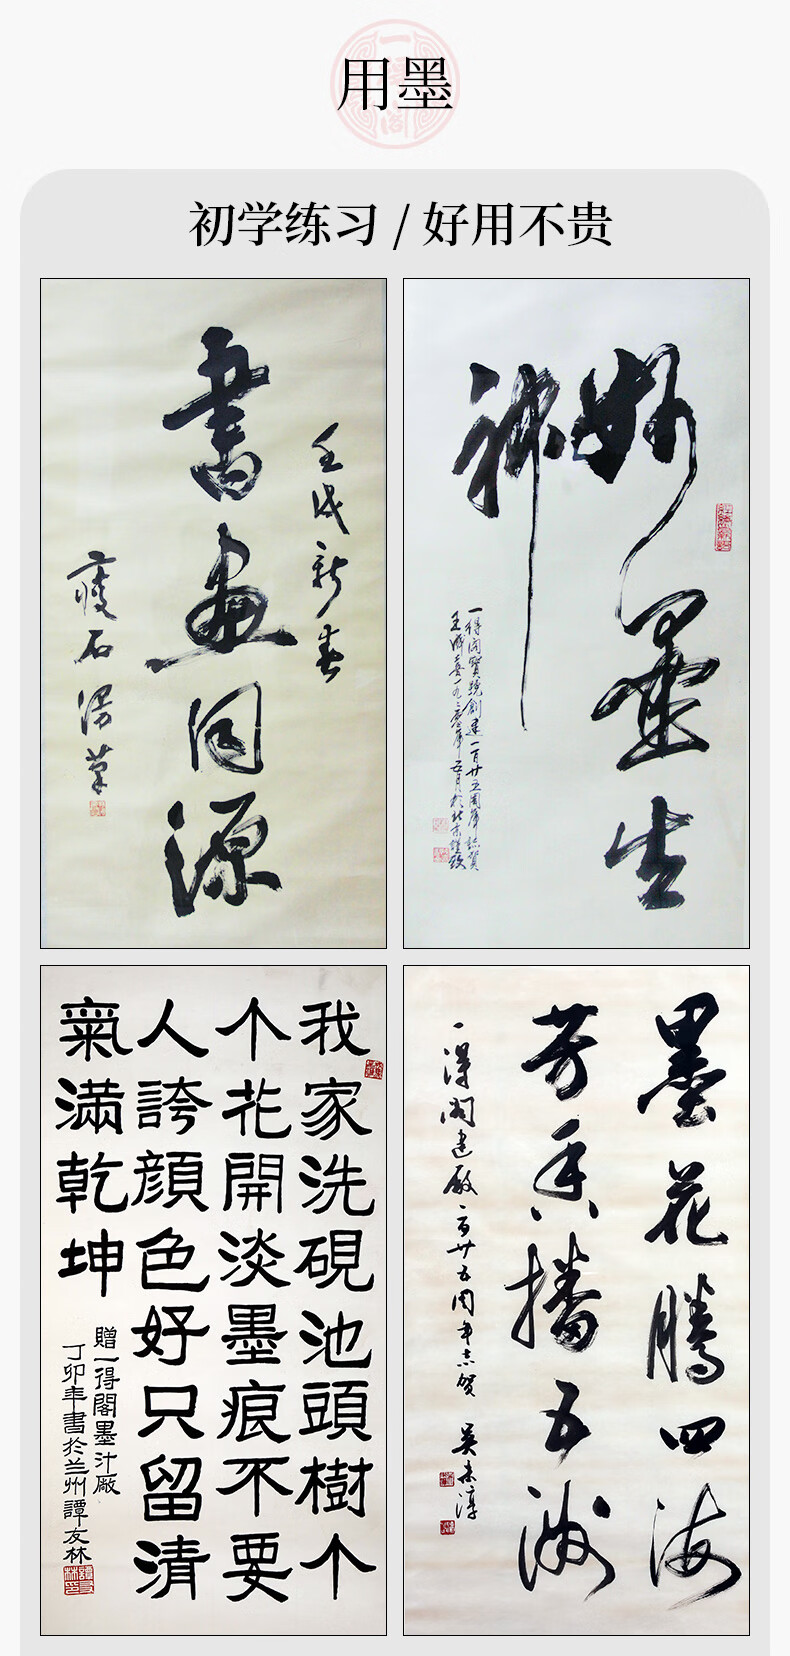 用墨
初学练习 / 好用不贵
壬戌新春
書画同源
瘦石漫筆
妙墨生
神
一得阁寶號創建一百廿五周年誌賀
我家洗硯池頭樹个
个花開淡墨痕不要
人誇顔色好只留清
氣滿乾坤
贈一得閣墨汁廠
丁卯年書於兰州譚友林
墨花騰四海
芳香播五洲
一得阁建廠一百廿五周年志贺